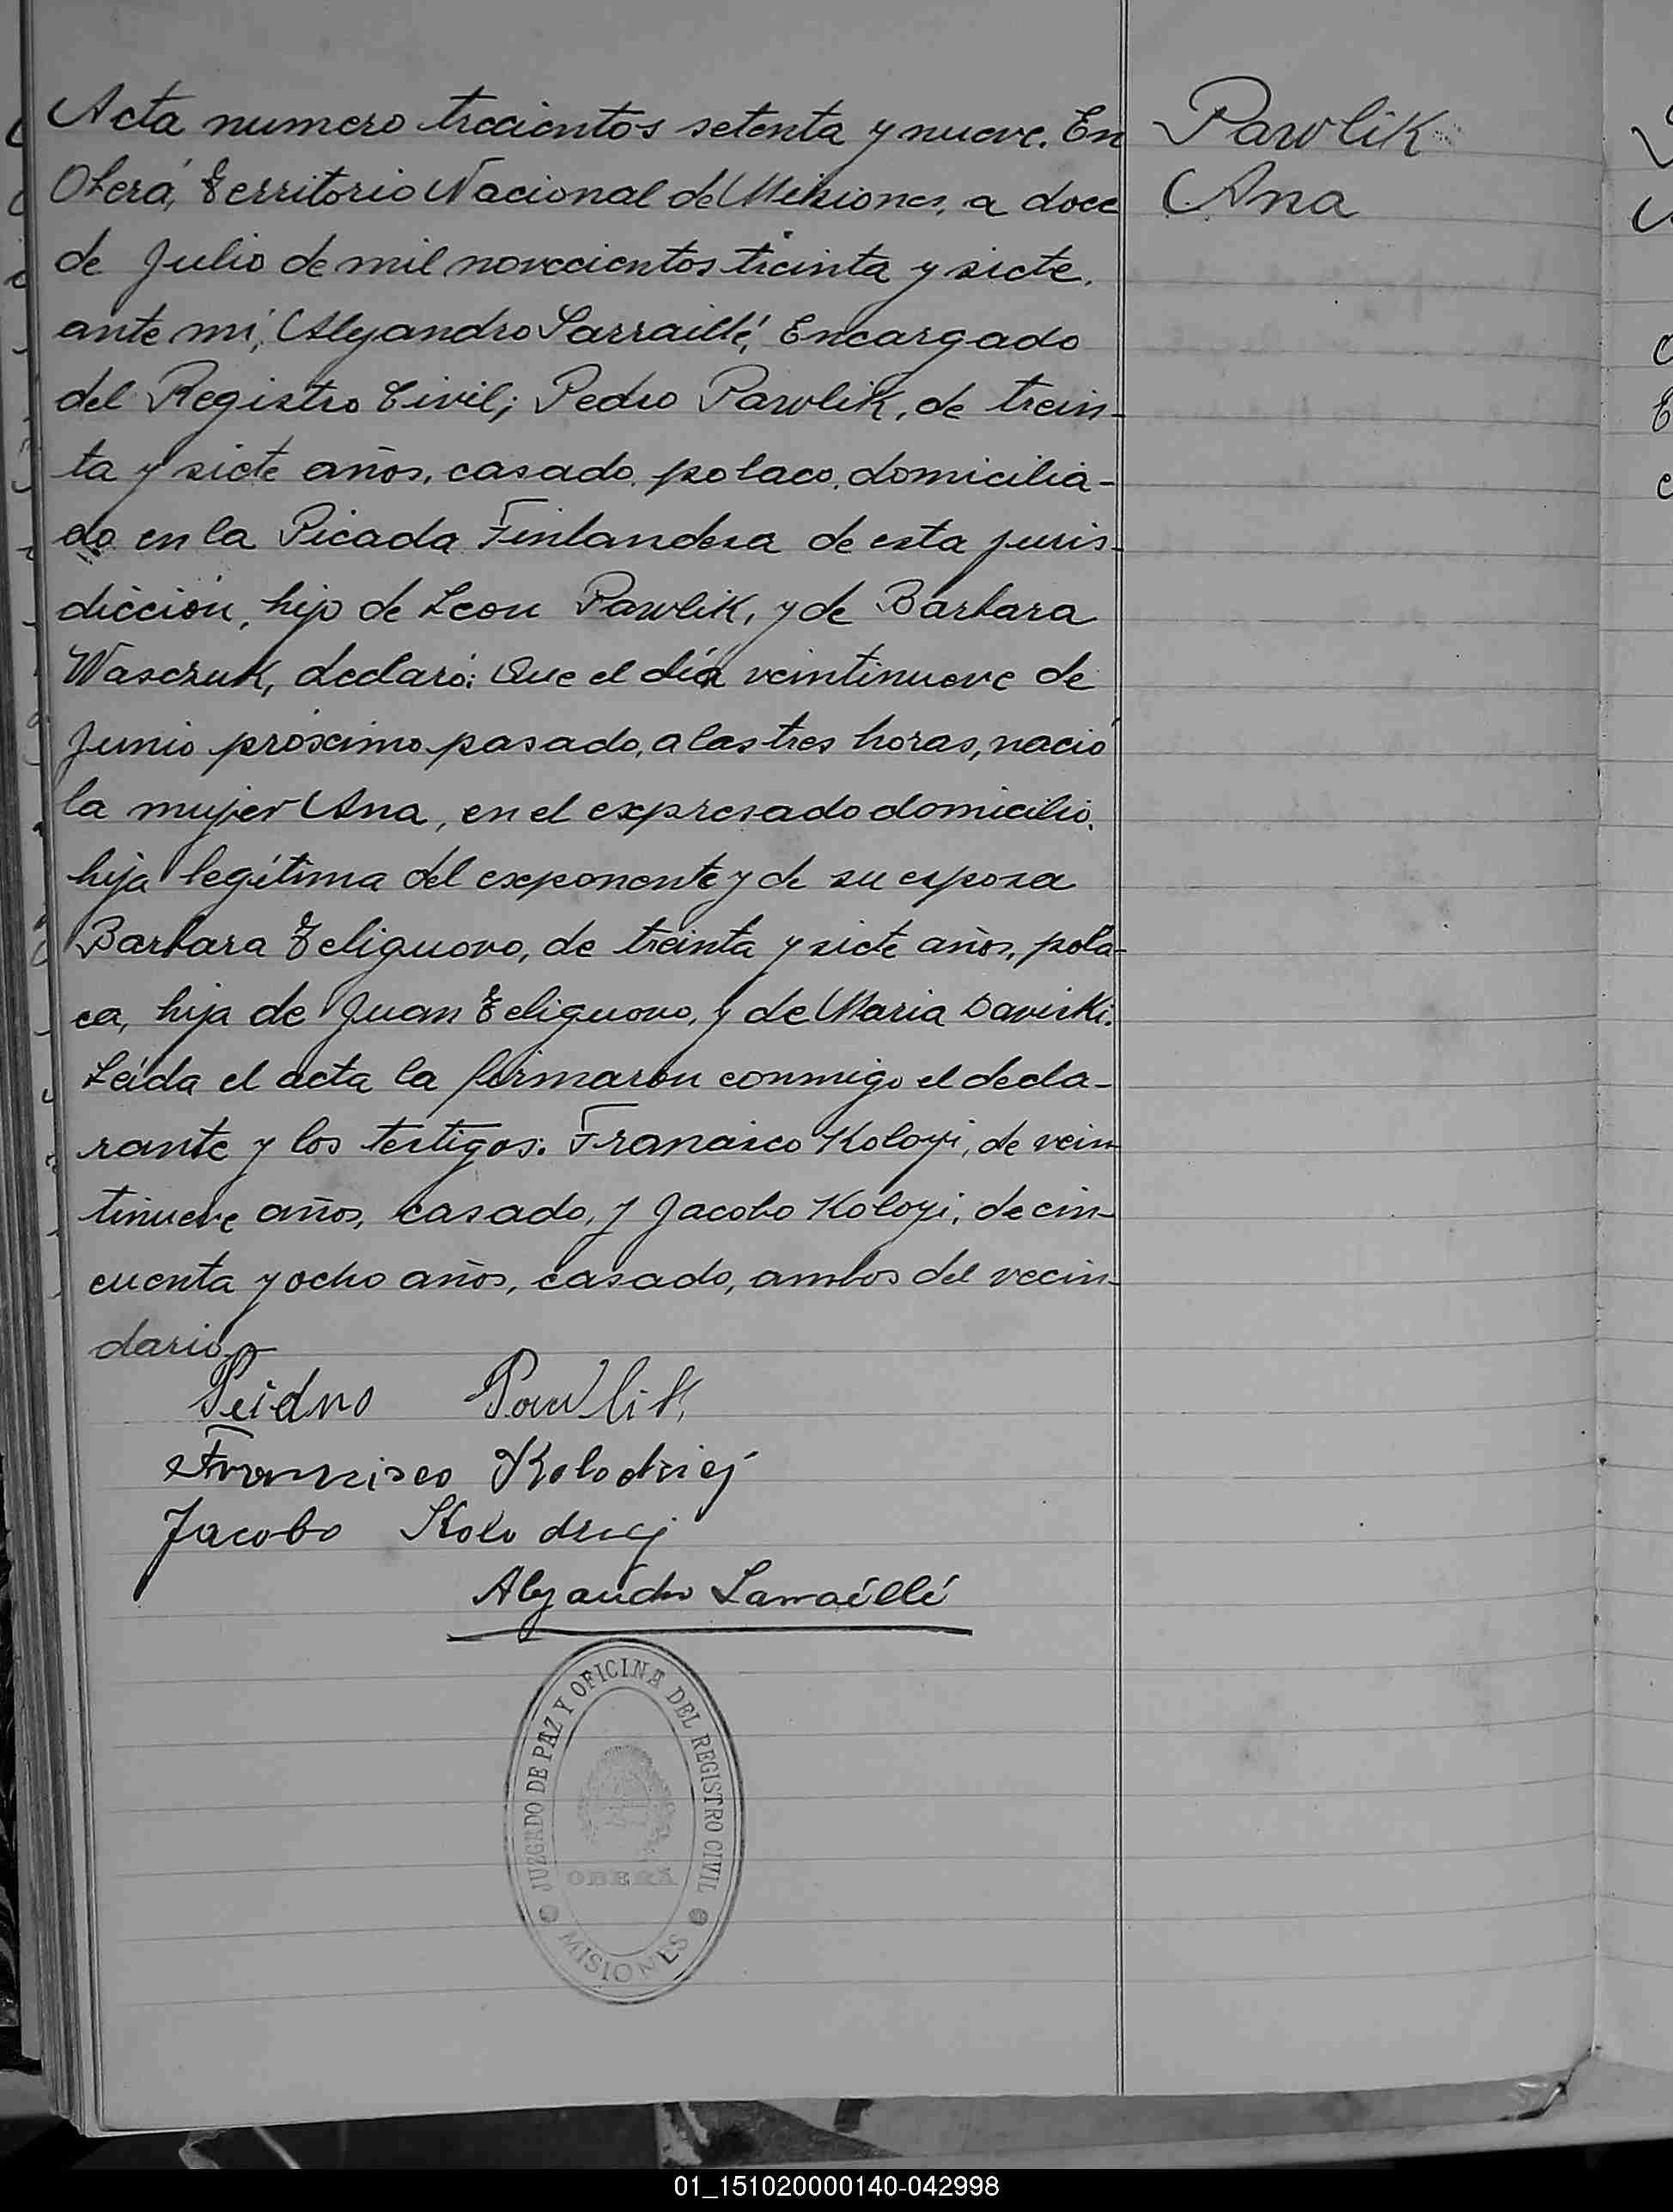 Acta numero trecientos setenta y nueve. En
Oberá, Territorio Nacional de Misiones, a doce
de Julio de mil novecientos treinta y siete,
ante mí, Alejandro Sarraillé, Encargado
del Registro Civil; Pedro Pawlik, de trein-
ta y siete años, casado, polaco, domicilia-
do en la Picada Finlandesa de esta juris-
dicción, hijo de Leon Pawlik, y de Barbara
Wasczuk, declaró: Que el día veintinueve de
Junio próximo pasado, a las tres horas, nació
la mujer Ana, en el expresado domicilio,
hija legítima del exponente y de su esposa
Barbara Teliguovo, de treinta y siete años, pola-
ca, hija de Juan Teliguovo, y de Maria Daviski.
Leída el acta la firmaron conmigo el decla-
rante y los testigos: Francisco Koloyi, de vein-
tinueve años, casado, y Jacobo Koloyi, de cin-
cuenta y ocho años, casado, ambos del vecin-
dario.
Peidro Pawlik
Francisco Kolodziej
Jacobo Kolodziej
Alejandro Sarraillé
JUZGADO DE PAZ Y OFICINA DEL REGISTRO CIVIL
OBERÁ
MISIONES
Pawlik
Ana
01_151020000140-042998